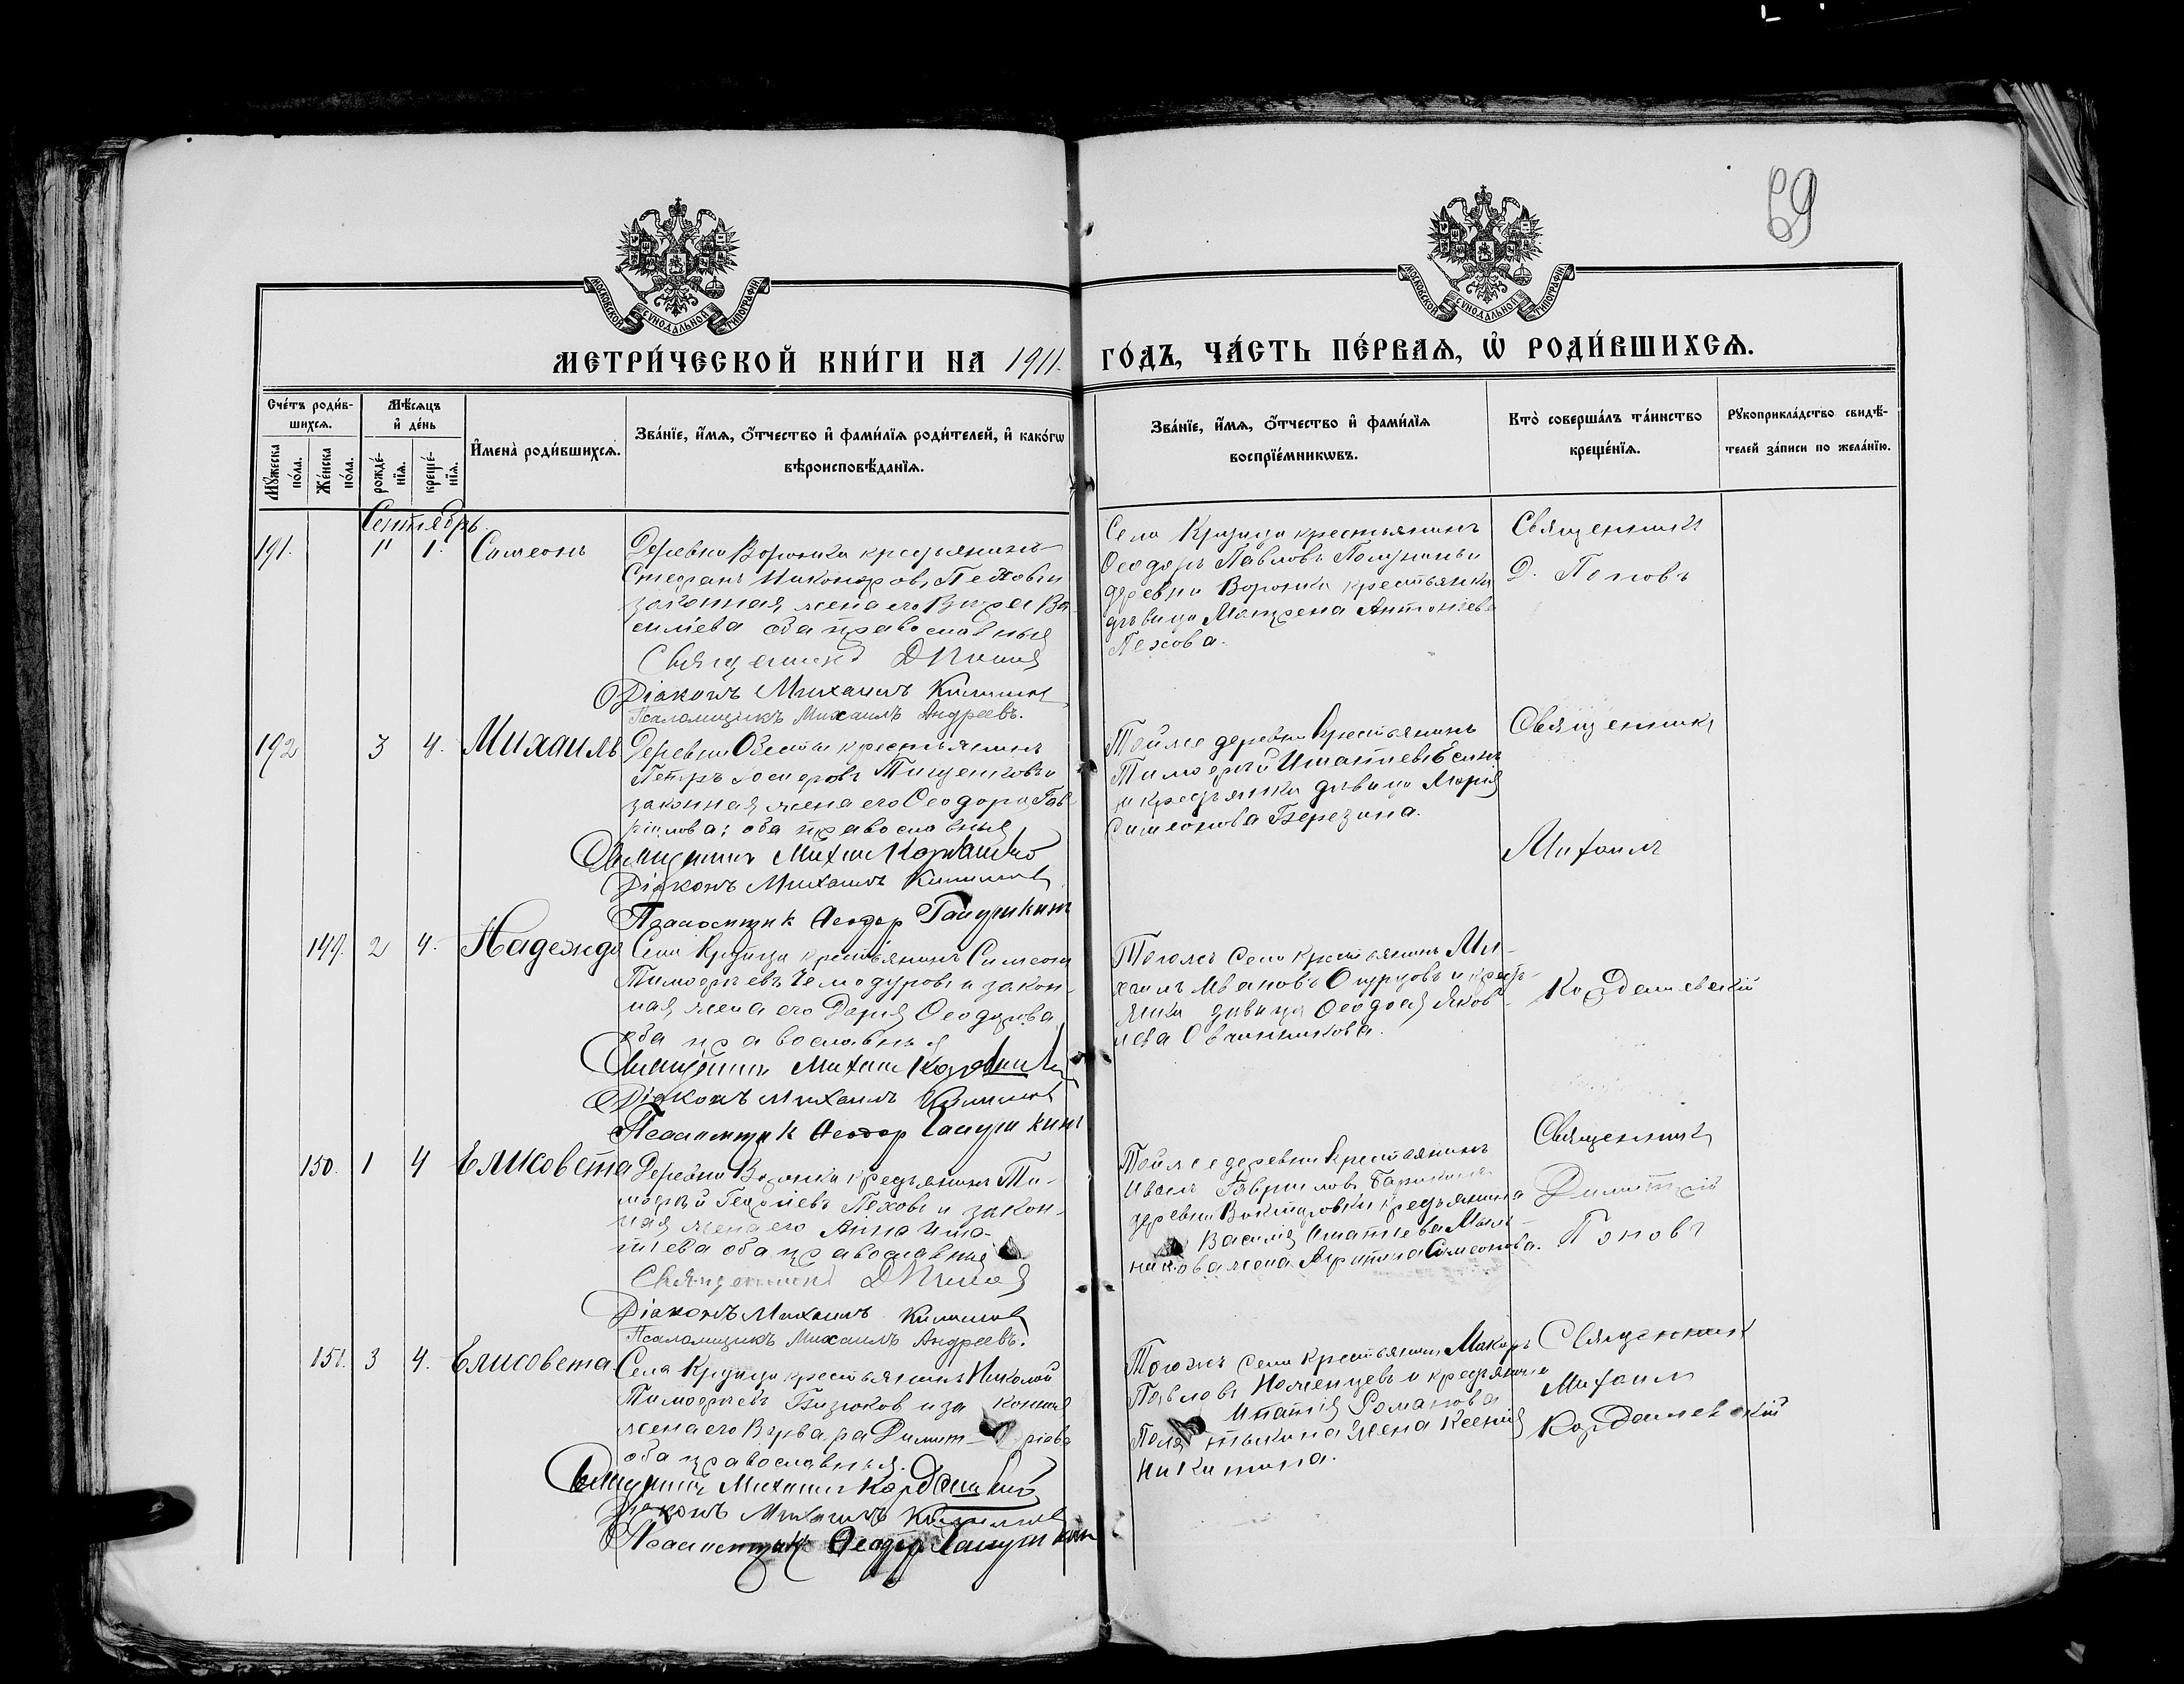 69
МОСКОВСКОЙ СѴНОДАЛЬНОЙ ТИПОГРАФІИ
МОСКОВСКОЙ СѴНОДАЛЬНОЙ ТИПОГРАФІИ
МЕТРИ́ЧЕСКОЙ КНИ́ГИ НА 1911. ГО́ДЪ, ЧА́СТЬ ПЕ́РВАѦ, Ѡ҆ РОДИ́ВШИХСѦ.
Сче́тъ роди́в-
шихсѧ.
Мѣ́сѧцъ
и҆ де́нь
Мꙋ́жеска
по́ла.
Же́нска
по́ла.
рожде́-
нїѧ.
креще́-
нїѧ.
И҆мена̀ роди́вшихсѧ.
Зва́нїе, и҆́мѧ, ѻ҆́тчество и҆ фами́лїѧ роди́телей, и҆ како́гѡ
вѣроисповѣ́данїѧ.
Зва́нїе, и҆́мѧ, ѻ҆́тчество и҆ фами́лїѧ
воспрїе́мникѡвъ.
Кто̀ соверша́лъ та́инство
креще́нїѧ.
Рꙋкоприкла́дство свидѣ́-
телей за́писи по жела́нїю.
Сентябрь.
191. 1 1. Симеонъ
Деревни Воронки крестьянинъ
Стефанъ Никоноровъ Пеховъ и
законная жена его Вѣра Ва-
силіева оба православные
Священникъ Д Поповъ
Діаконъ Михаилъ
Псаломщикъ Михаилъ Андреевъ.
Села Крутца крестьянинъ
Ѳеодоръ Павловъ и
деревни Воронки крестьянка
дѣвица Матрена Антоніева
Пехова.
Священникъ
Д. Поповъ
192 3 4. Михаилъ
Деревни крестьянинъ
Петръ и
законная жена его Ѳеодора Гав-
ріилова; оба православные
Священникъ Михаилъ Кордашевскій
Діаконъ Михаилъ
Псаломщикъ Ѳеодор
Той же деревни крестьянинъ
Тимоѳей Игнатіевъ Есинъ
и крестьянка дѣвица Марія
Симеонова Березина.
Священникъ
Михаилъ
Кордашевскій
149. 2 4. Надежда
Села Крутца крестьянинъ Симеонъ
Тимоѳеевъ Чемодуровъ и закон-
ная жена его Дарія Ѳеодорова
оба православные
Священникъ Михаилъ Кордашевскій
Діаконъ Михаилъ
Псаломщик Ѳеодор
Того же села крестьянинъ Ми-
хаилъ Ивановъ Огурцовъ и крест-
янка дѣвица Ѳеодосія Яков-
лева Овчинникова.
150. 1 4 Елисовета
Деревни Воронки крестьянинъ Ти-
моѳей Георгіевъ Пеховъ и закон-
ная жена его Анна Игна-
тіева оба православные
Священникъ Д Поповъ
Діаконъ Михаилъ
Псаломщикъ Михаилъ Андреевъ.
Той же деревни крестьянинъ
Иванъ Гавриловъ
деревни крестьянина
Василія Игнатіева Мель-
никова жена Агрипина Симеонова.
Священникъ
Димитрій
Поповъ
151. 3 4. Елисовета.
Села Крутца крестьянинъ Николай
Тимоѳеевъ Бизюков и за конная
жена его Варвара Димит-ріева
оба православные.
Священникъ Михаилъ Кордашевскій
Діаконъ Михаилъ
Псаломщикъ Ѳеодор
Того же села крестьянинъ Макаръ
Павловъ и крестьянина
Игнатія Романова
жена Ксенія
Никитина.
Священник
Михаил
Кордашевскій